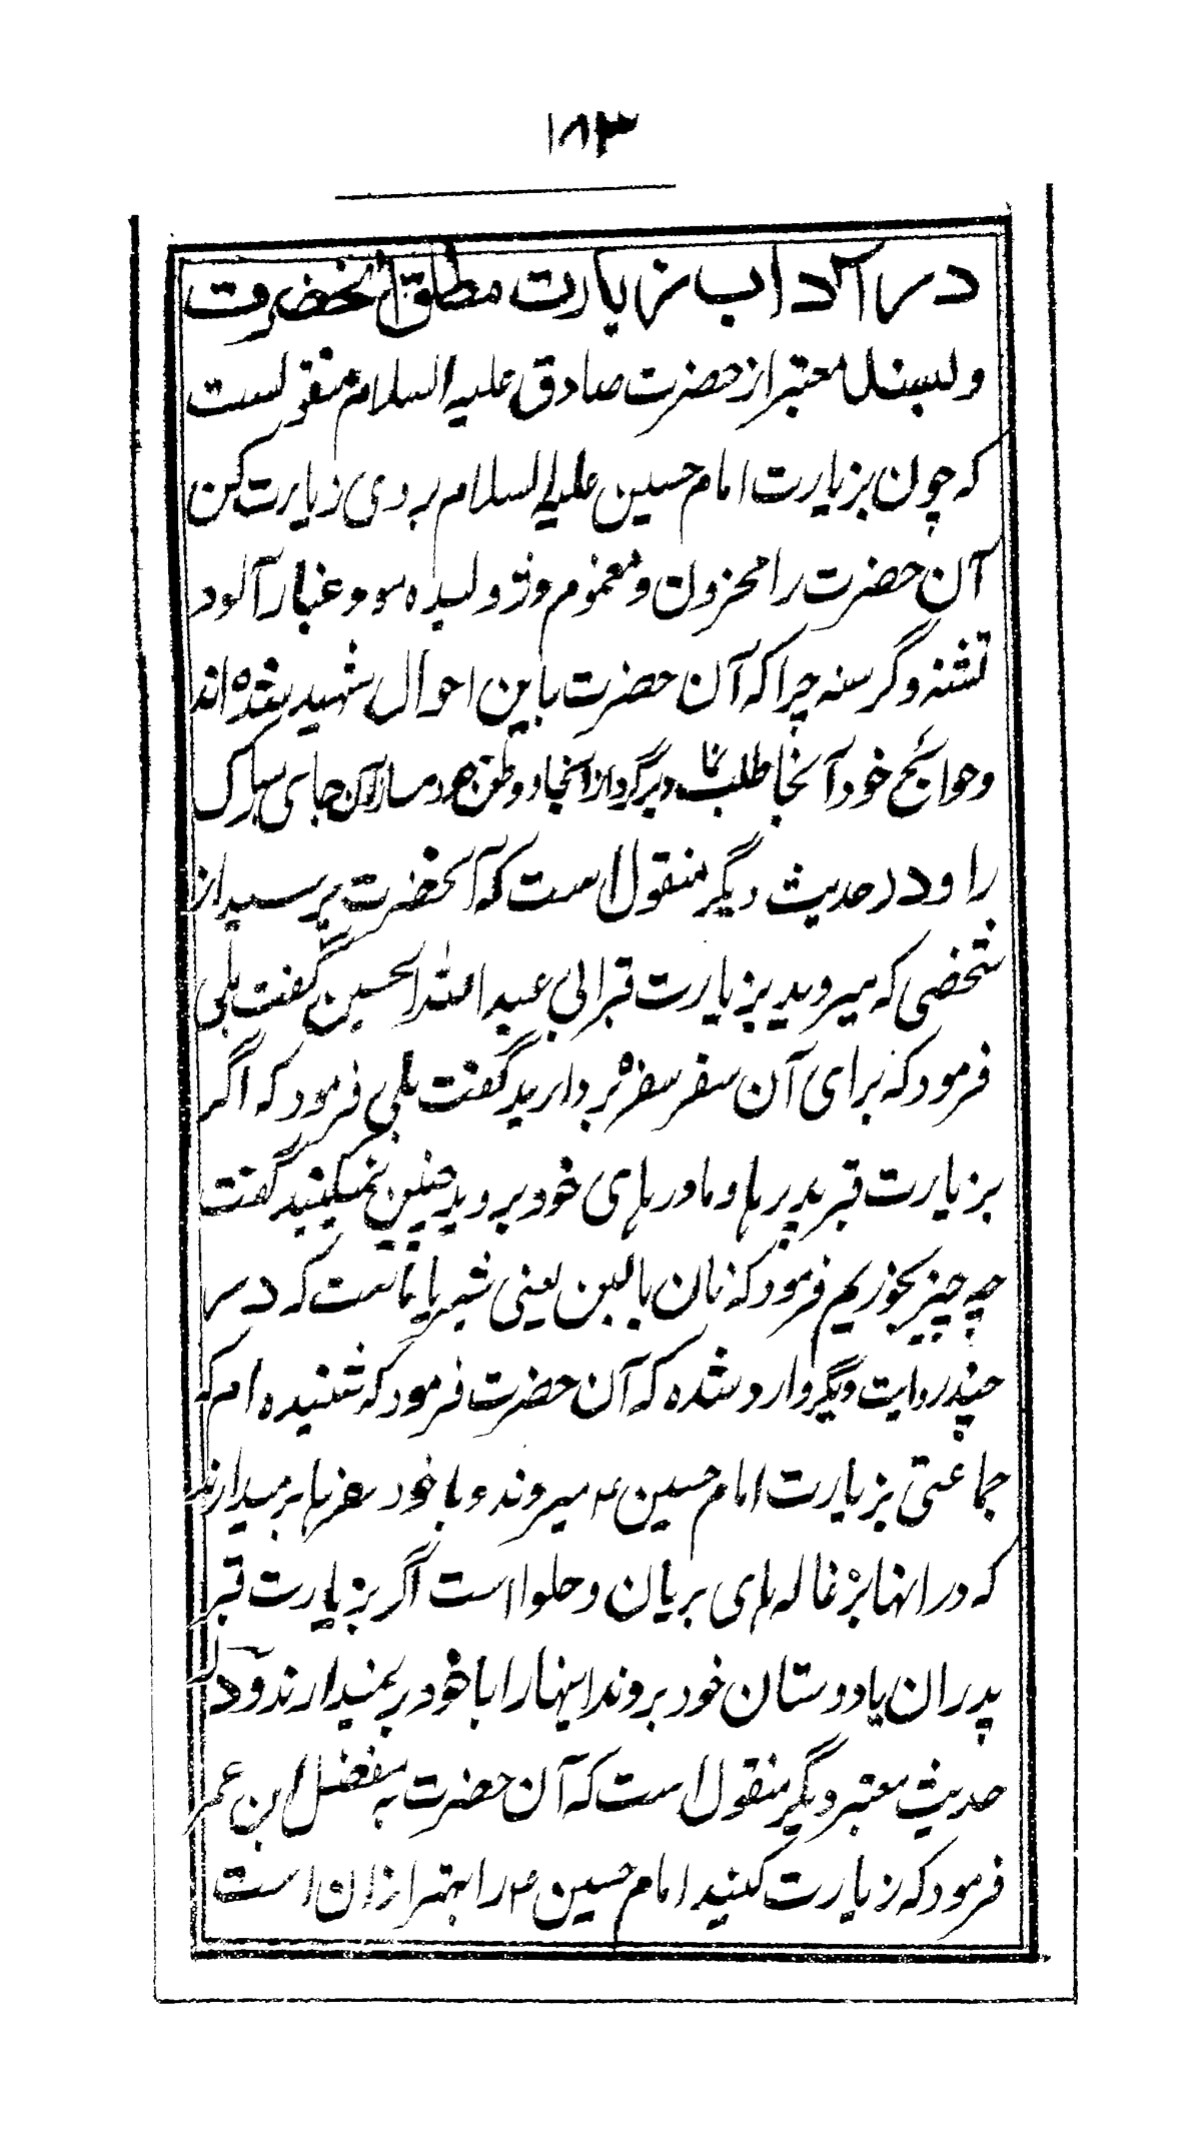 ۱۸۳
در آداب زیارت مطلق آنحضرت
و بسند معتبر از حضرت صادق علیه السلام منقولست
که چون بزیارت امام حسین علیه السلام بروی زیارت کن
آن حضرت را محزون و مغموم و ژولیده مو و غبار آلود
تشنه و گرسنه چرا که آن حضرت باین احوال شهید شده اند
و حوائج خود آنجا طلب نما و برگرد از آنجا و وطن خود مساز آن جای مبارک
را و در حدیث دیگر منقول است که آنحضرت پرسید از
شخصی که میروید بزیارت قبر ابی عبد الله الحسین گفت بلی
فرمود که برای آن سفر سفره بردارید گفت بلی فرمود که اگر
بزیارت قبر پدرها و مادرهای خود بروید چنین نمیکنید گفت
چه چیز بخوریم فرمود که نان با لبن یعنی شیر یا ماست که در
چند روایت دیگر وارد شده که آن حضرت فرمود که شنیده ام که
جماعتی بزیارت امام حسین ۴ میروند و با خود سفرها برمیدارند
که در انها بزغاله های بریان و حلوا است اگر بزیارت قبر
پدران یا دوستان خود بروند اینها را با خود برنمیدارند و در
حدیث معتبر دیگر منقول است که آن حضرت به مفضل ابن عمر
فرمود که زیارت کنید امام حسین ۴ را بهتر ازان است